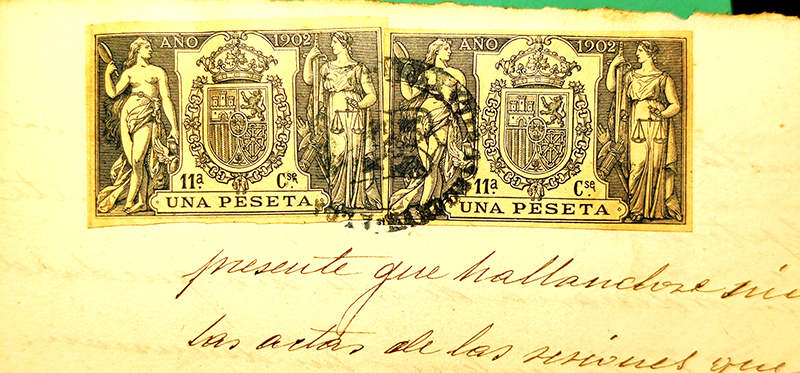 AÑO 1902
11ª Cse.
UNA PESETA
AÑO 1902
11ª Cse.
UNA PESETA
presente que hallandose
las actas de las sesiones que